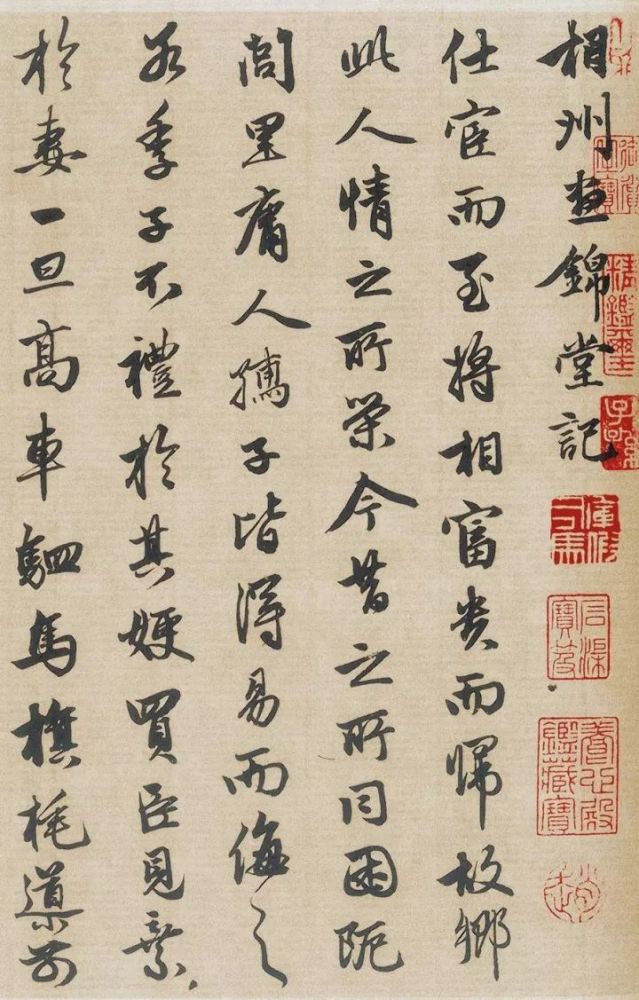 相州晝錦堂記
仕宦而至將相富貴而歸故鄉
此人情之所榮今昔之所同困阨
閭里庸人孺子皆得易而侮之
若季子不禮於其嫂買臣見棄
於妻一旦高車駟馬旗旄導前
石渠寶笈
養心殿鑑藏寶